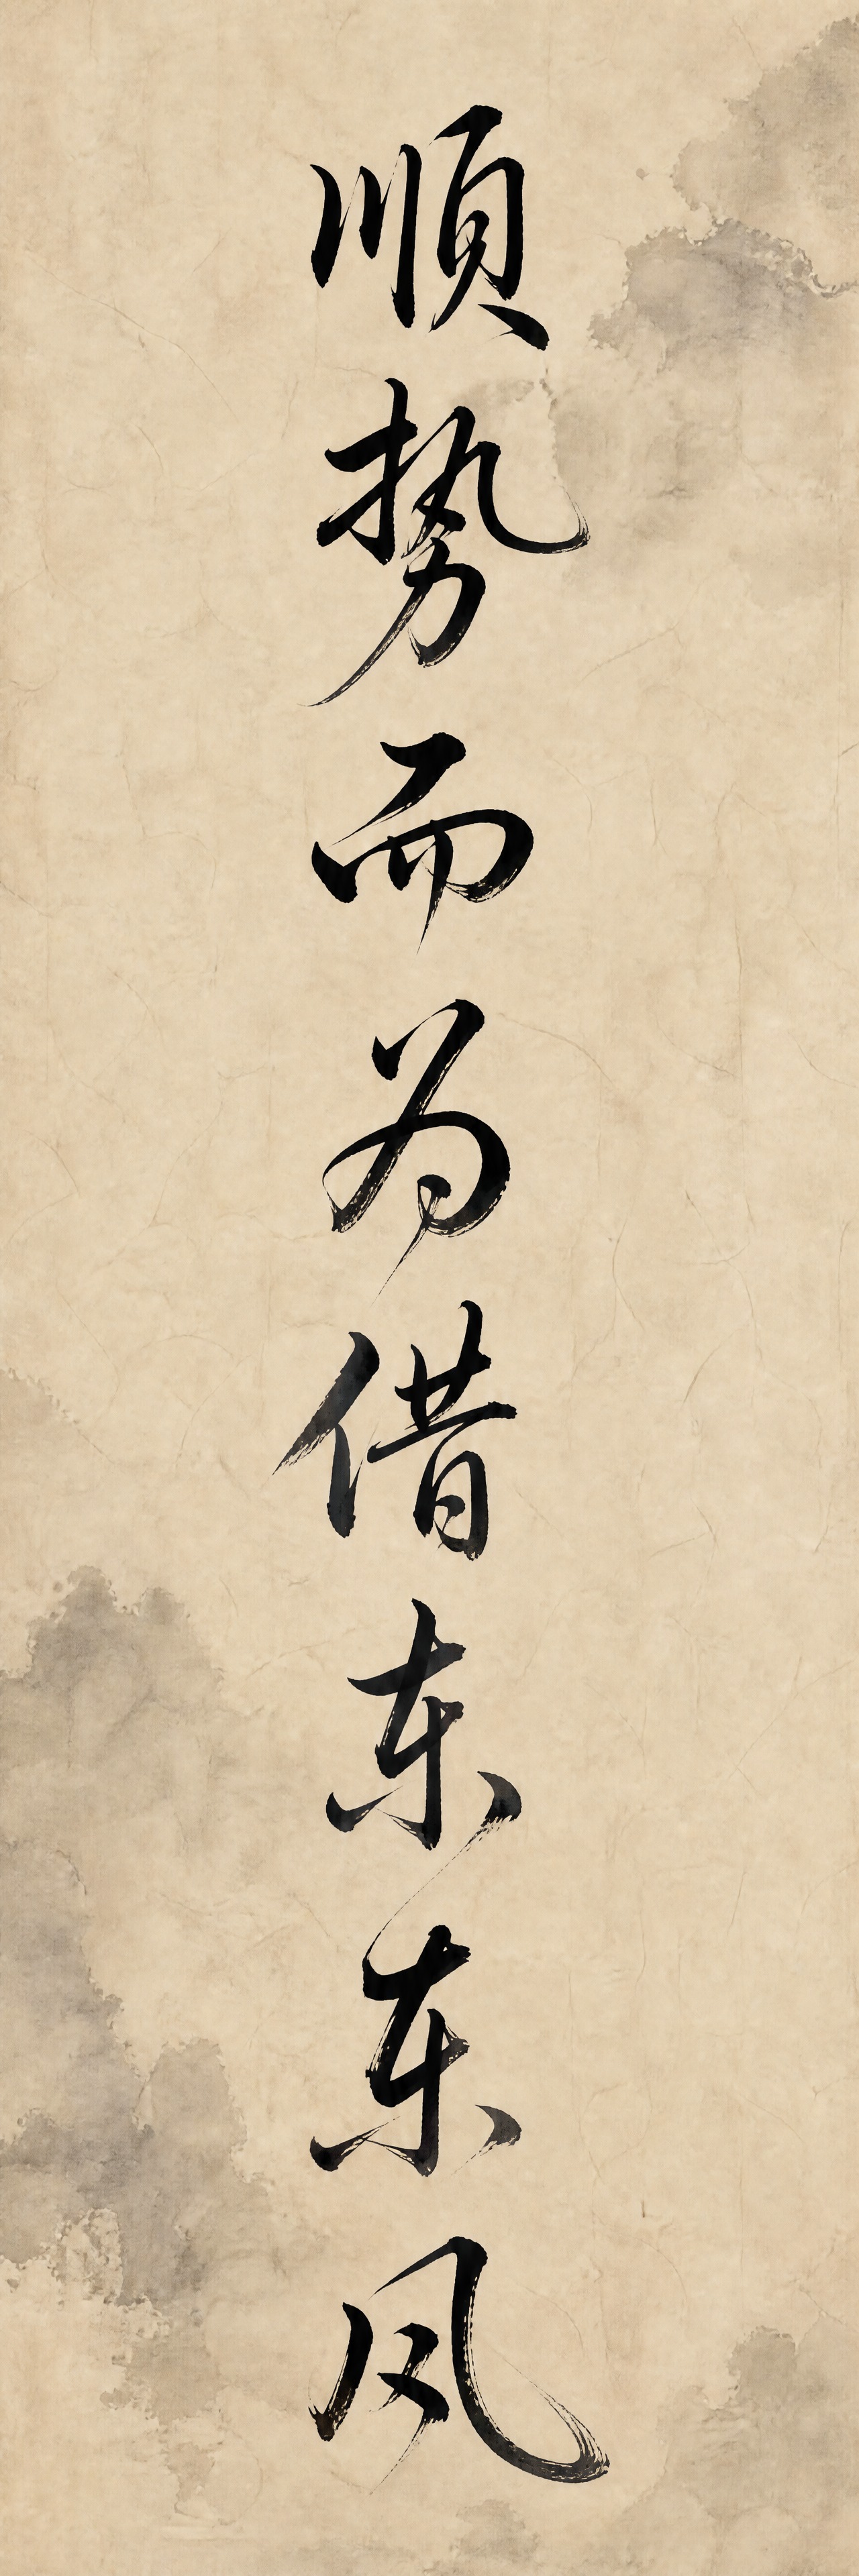 顺势而为借东东风